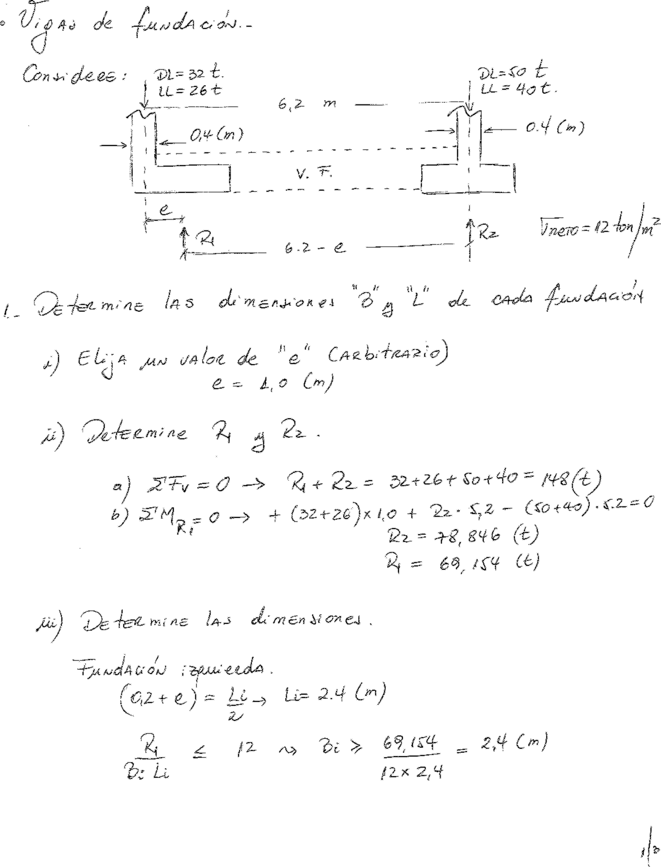 • Vigas de fundación.-
Considere: DL = 32 t. DL = 50 t
LL = 26 t LL = 40 t.
6,2 m
0,4 (m) 0.4 (m)
V. F.
e
R1 R2 σneto = 12 ton/m²
6.2 - e
1.- Determine las dimensiones "B" y "L" de cada fundación
i) Elija un valor de "e" (arbitrario)
e = 1,0 (m)
ii) Determine R1 y R2.
a) ΣFv = 0 → R1 + R2 = 32 + 26 + 50 + 40 = 148 (t)
b) ΣM R1 = 0 → + (32+26) × 1,0 + R2 · 5,2 - (50+40) · 5.2 = 0
R2 = 78,846 (t)
R1 = 69,154 (t)
iii) Determine las dimensiones.
Fundación izquierda.
(0,2 + e) = Li/2 → Li = 2.4 (m)
R1/Bi Li ≤ 12 ⇝ Bi ≥ 69,154/12 × 2,4 = 2,4 (m)